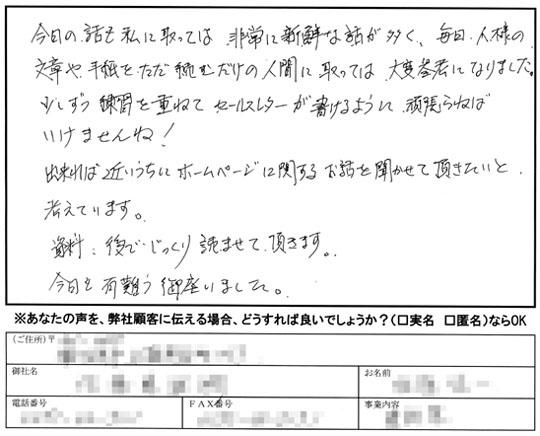 今日の話も私に取っては非常に新鮮な話が多く、毎日人様の
文章や手紙をただ読むだけの人間に取っては大変参考になりました。
少しずつ練習を重ねてセールスレターが書けるように頑張らねば
いけませんね！
出来れば近いうちにホームページに関するお話を聞かせて頂きたいと
考えています。
資料、後で、じっくり読ませて頂きます。
今日も有難う御座いました。
※あなたの声を、弊社顧客に伝える場合、どうすれば良いでしょうか？（□実名　□匿名）ならOK
（ご住所）〒
御社名
お名前
電話番号
FAX番号
事業内容